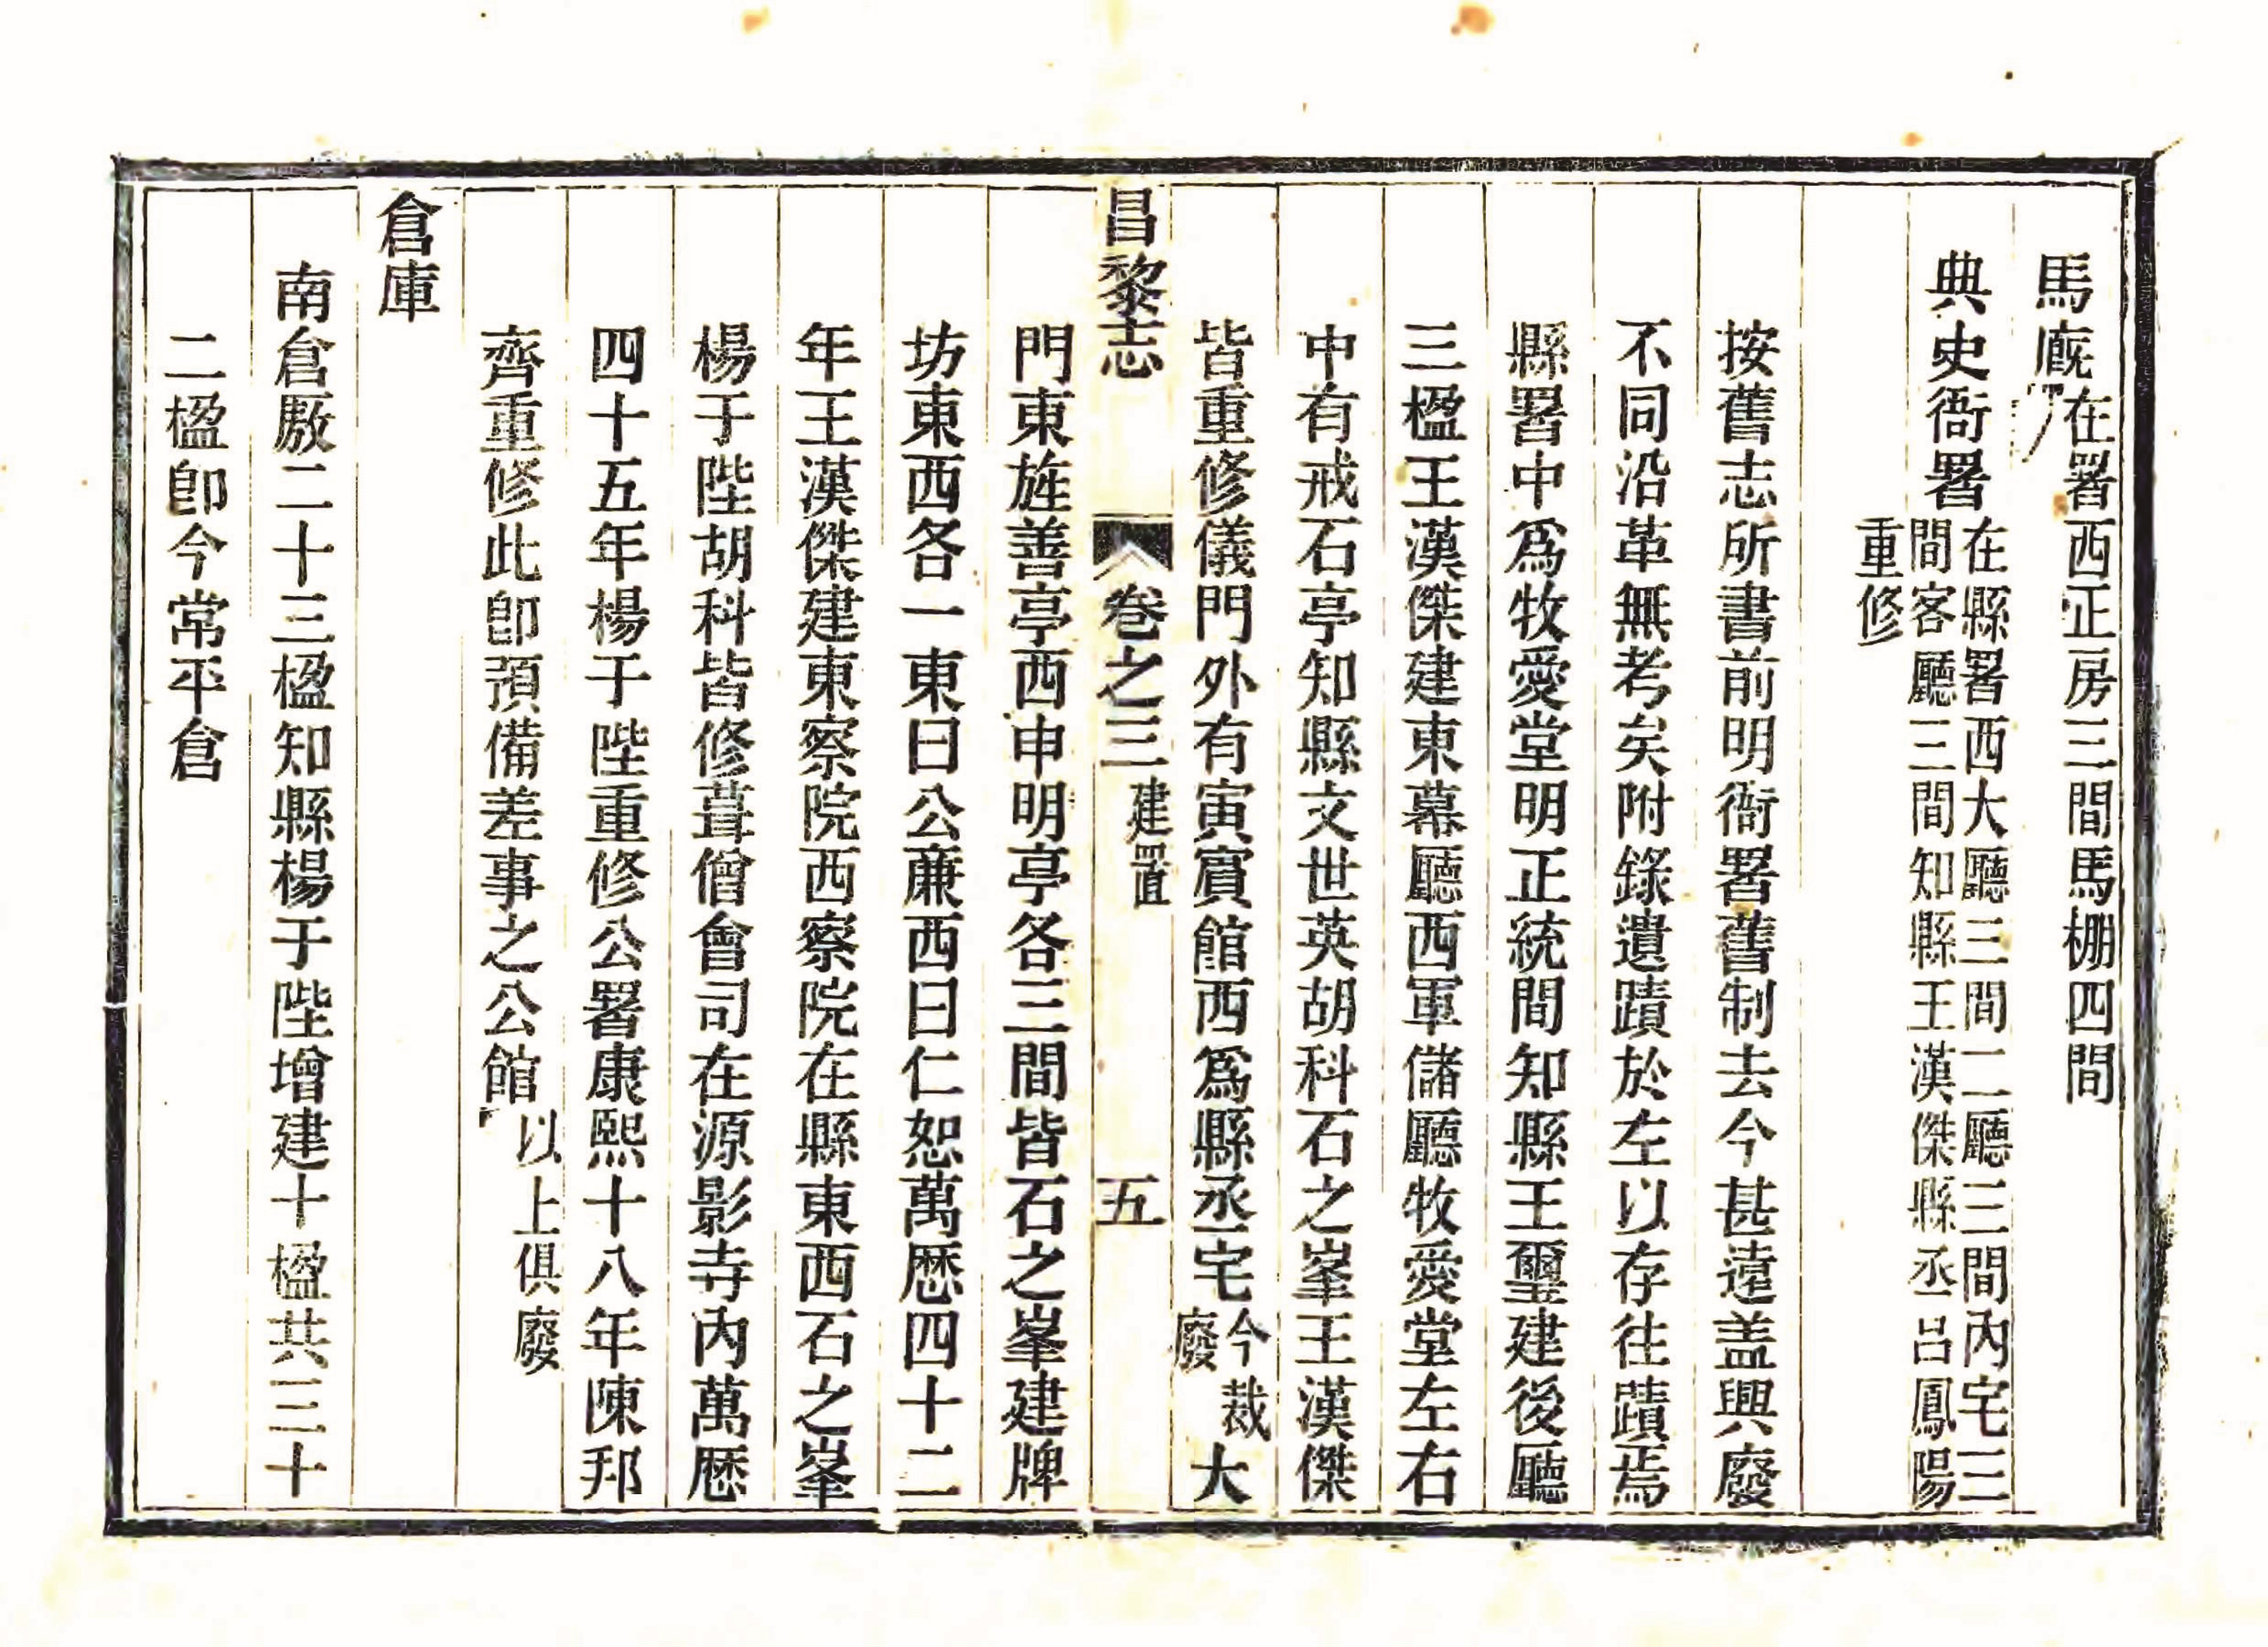 馬廐在署西正房三間馬棚四間
典史衙署在縣署西大廳三間二廳三間內宅三
間客廳三間知縣王漢傑縣丞呂鳳陽
重修
按舊志所書前明衙署舊制去今甚遠盖興廢
不同沿革無考矣附錄遺蹟於左以存往蹟焉
縣署中爲牧愛堂明正統間知縣王璽建後廳
三楹王漢傑建東幕廳西軍儲廳牧愛堂左右
中有戒石亭知縣文世英胡科石之峯王漢傑
皆重修儀門外有寅賓館西爲縣丞宅今裁廢大
昌黎志 卷之三 建置 五
門東旌善亭西申明亭各三間皆石之峯建牌
坊東西各一東曰公亷西曰仁恕萬歷四十二
年王漢傑建東察院西察院在縣東西石之峯
楊于陛胡科皆修葺僧會司在源影寺內萬歷
四十五年楊于陛重修公署康熙十八年陳邦
齊重修此卽預備差事之公館以上俱廢
倉庫
南倉厫二十三楹知縣楊于陛增建十楹共三十
二楹卽今常平倉